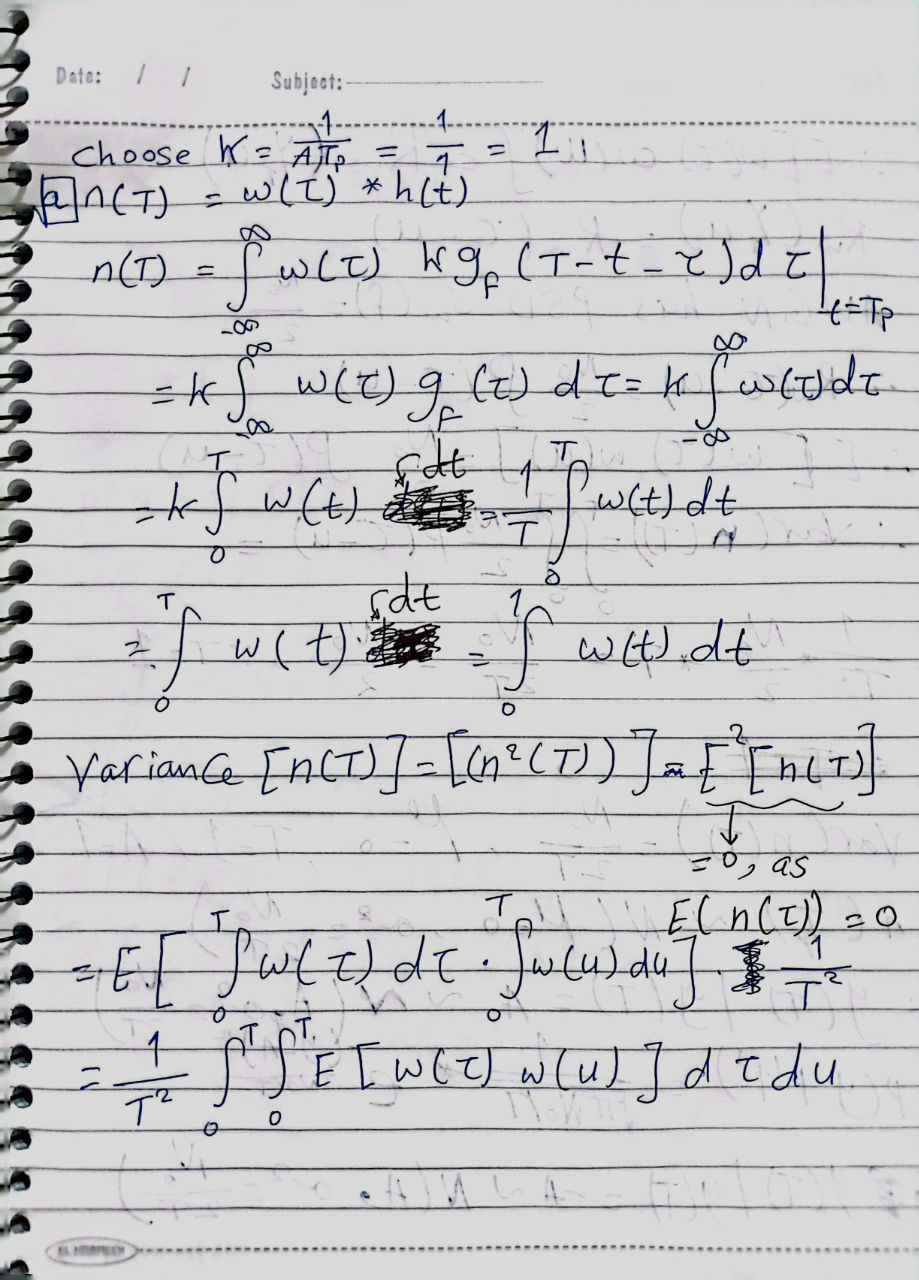 Date: / / Subject:
choose K = 1/(A)Tp = 1/1 = 1
a n(T) = w(τ) * h(t)
n(T) = ∫_{-∞}^{∞} w(τ) k g_p (T - t - τ) d τ |_{t=Tp}
= k ∫_{-∞}^{∞} w(τ) g_p (τ) d τ = k ∫_{-∞}^{∞} w(τ) dτ
= k ∫_0^T w(t) dt = 1/T ∫_0^T w(t) dt
= ∫_0^T w(t) dt = ∫_0^1 w(t) dt
Variance [n(T)] = [(n²(T))] = E² [n(T)]
= 0, as
E(n(τ)) = 0
= E [ ∫_0^T w(τ) dτ · ∫_0^T w(u) du ] · 1/T²
= 1/T² ∫_0^T ∫_0^T E [w(τ) w(u)] d τ du